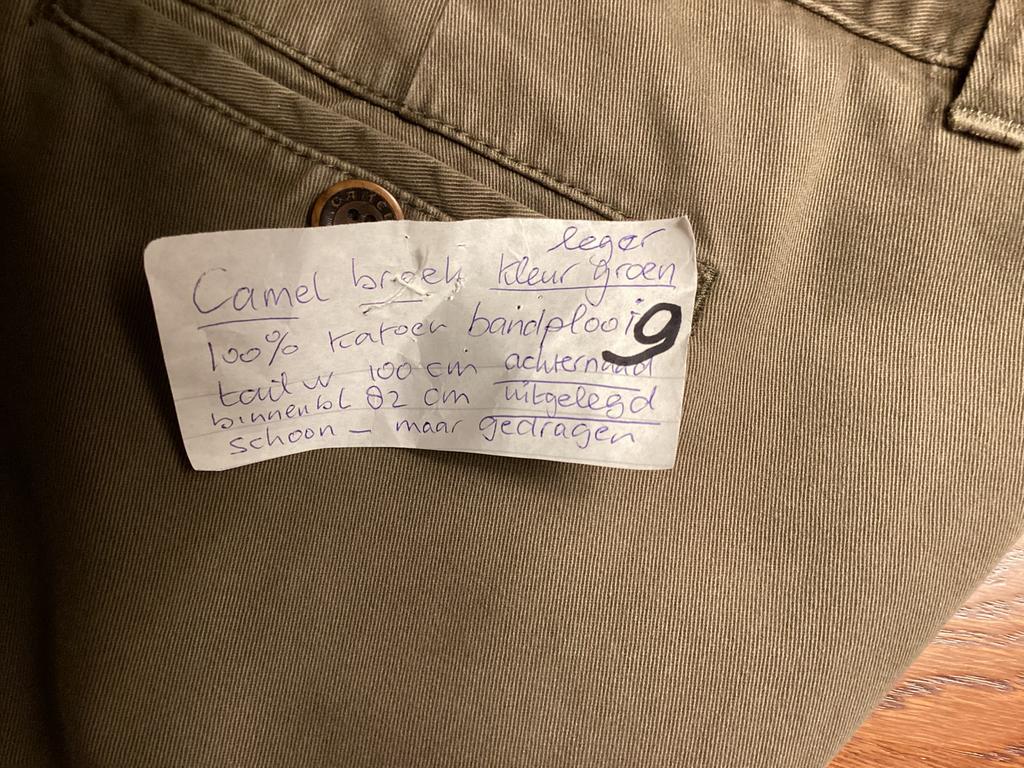 CAMEL
leger
Camel broek kleur groen
100% katoen bandplooi 9
tailw 100 cm achternaad
binnenbl 82 cm uitgelegd
schoon - maar gedragen